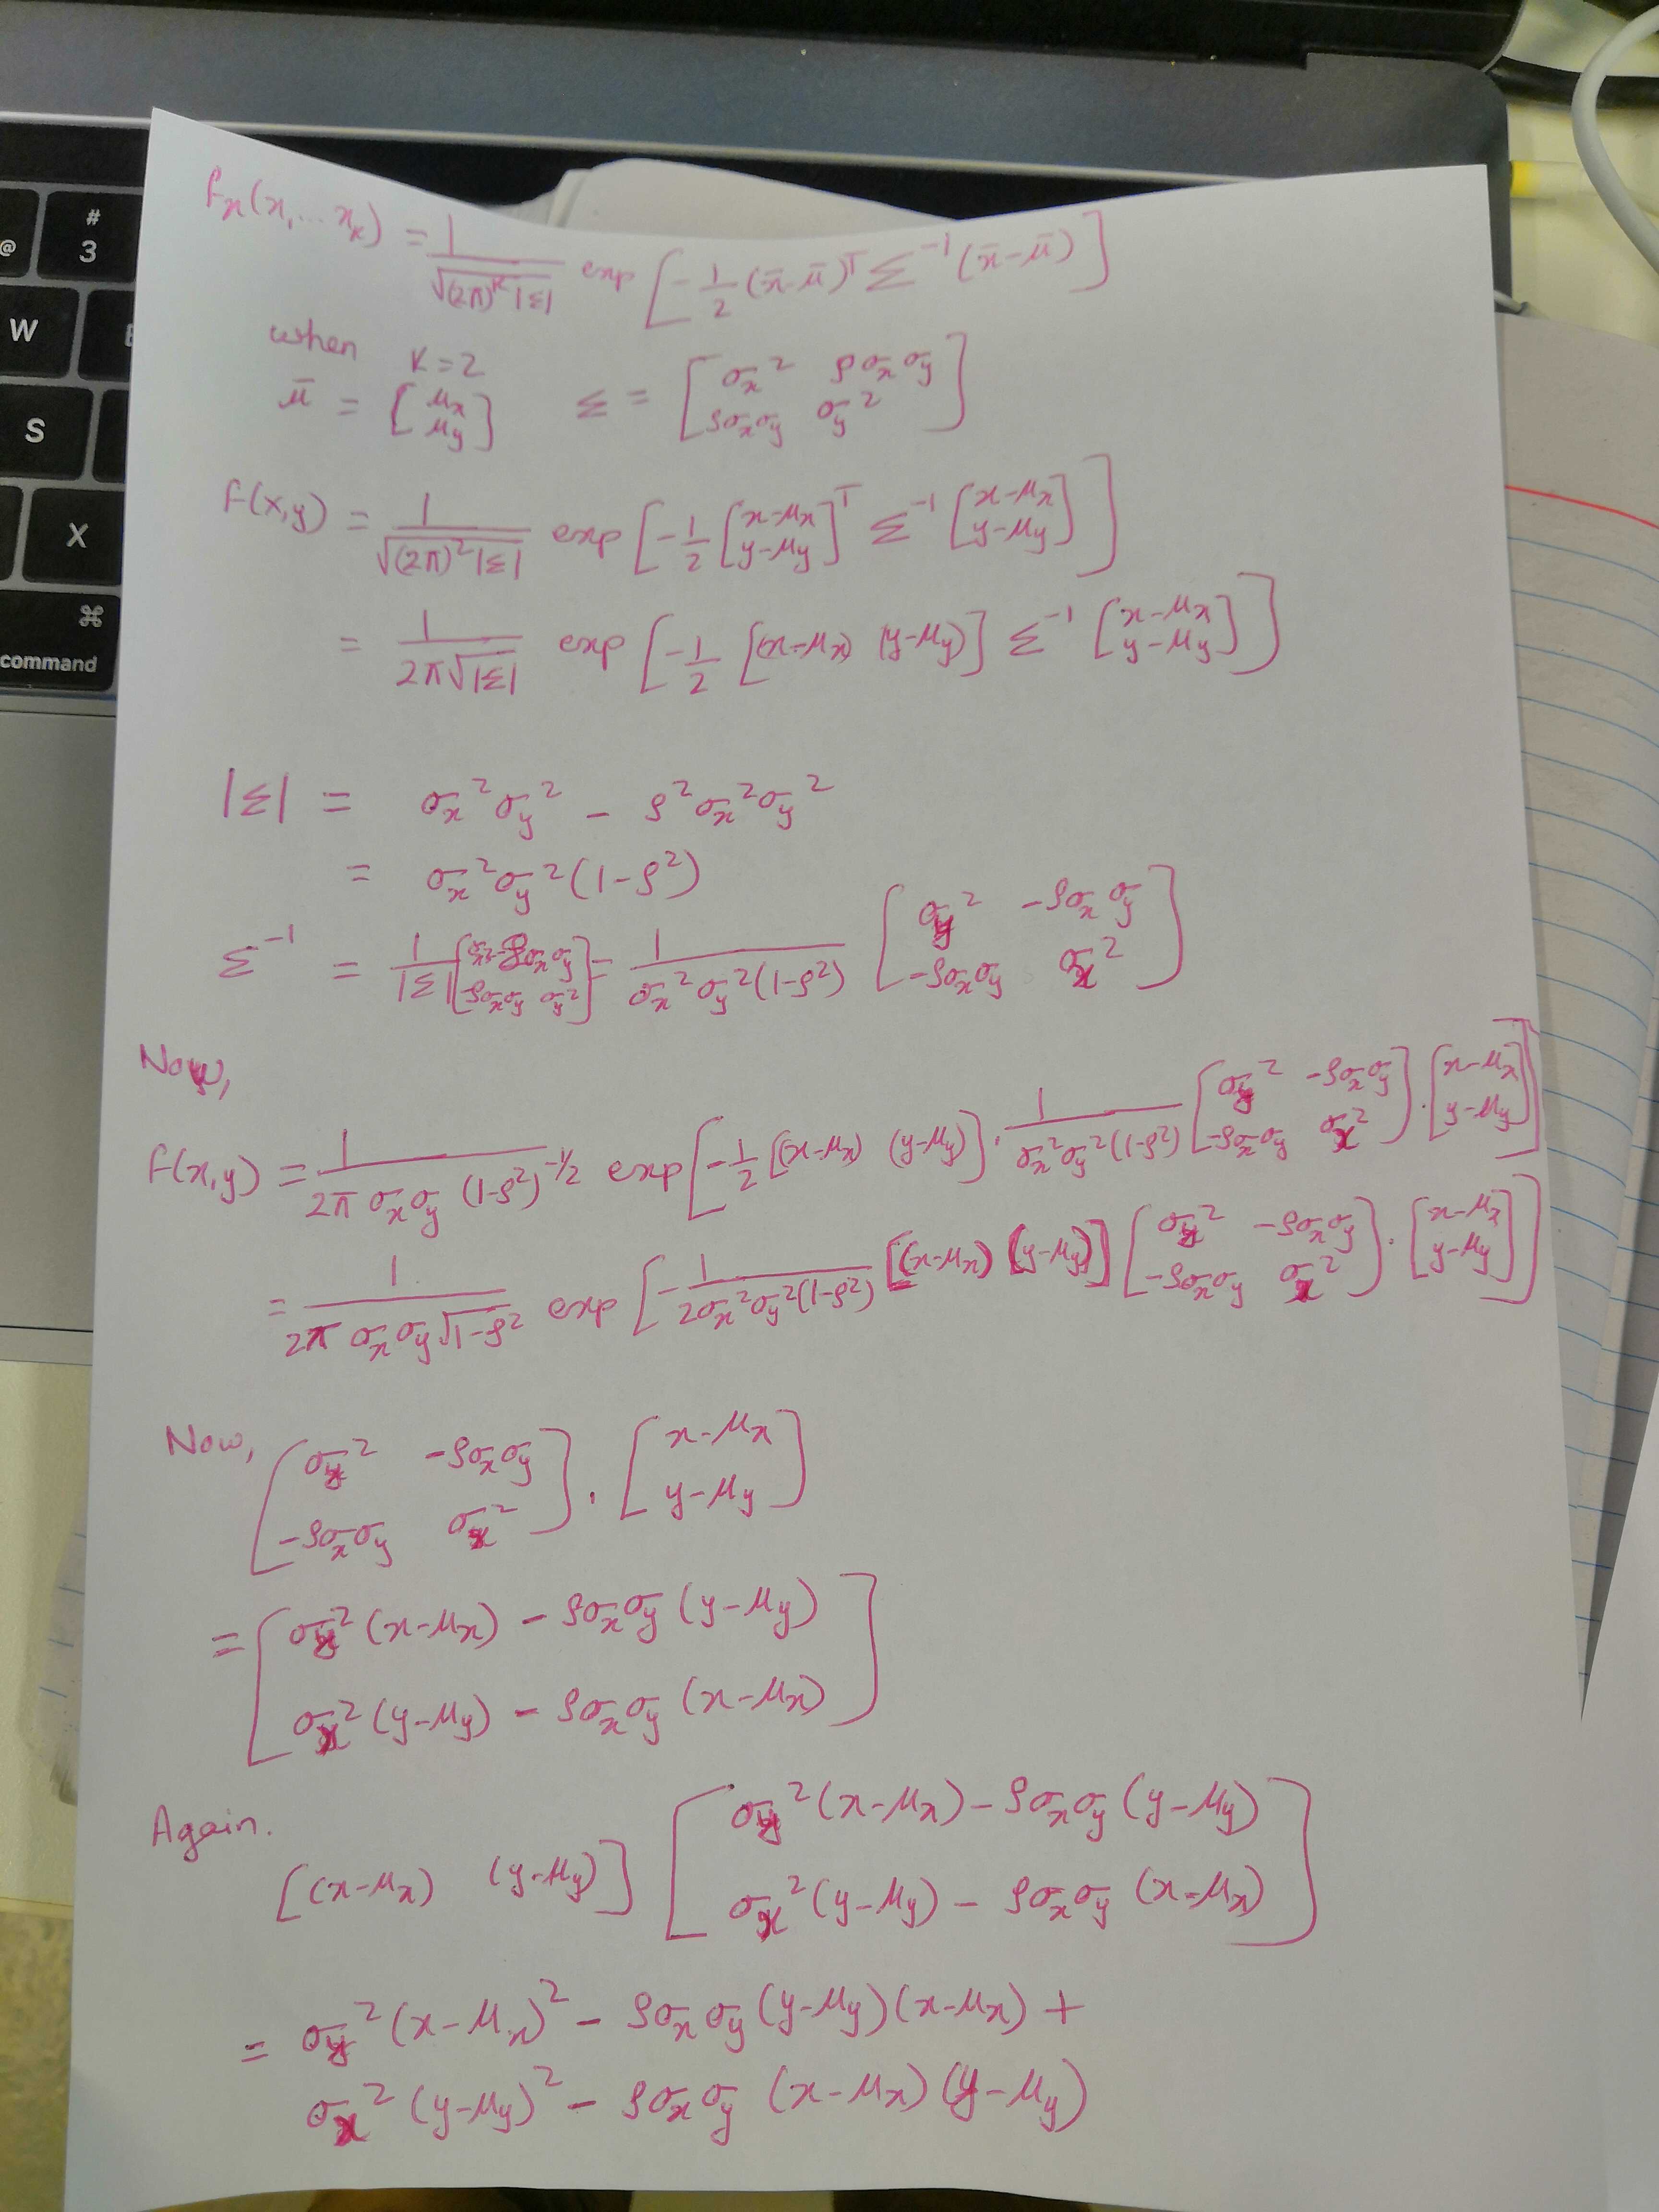 @ # 3
W
S
X
⌘
command
fₓ(x₁...xₖ) = 1/√((2π)^K |Σ|) exp [-1/2 (x̄-μ̄)^T Σ^-1 (x̄-μ̄)]
when K=2
μ̄ = [μx; μy] Σ = [σx² ρσxσy; ρσxσy σy²]
f(x,y) = 1/√((2π)²|Σ|) exp [-1/2 [x-μx; y-μy]^T Σ^-1 [x-μx; y-μy]]
= 1/(2π√|Σ|) exp [-1/2 [(x-μx) (y-μy)] Σ^-1 [x-μx; y-μy]]
|Σ| = σx²σy² - ρ²σx²σy²
= σx²σy²(1-ρ²)
Σ^-1 = 1/|Σ| [σx² -ρσxσy; -ρσxσy σy²] = 1/(σx²σy²(1-ρ²)) [σy² -ρσxσy; -ρσxσy σx²]
Now,
f(x,y) = 1/(2π σxσy (1-ρ²)^-1/2) exp [-1/2 [(x-μx) (y-μy)] . 1/(σx²σy²(1-ρ²)) [σy² -ρσxσy; -ρσxσy σx²] . [x-μx; y-μy]]
= 1/(2π σxσy√(1-ρ²)) exp [-1/(2σx²σy²(1-ρ²)) [(x-μx) (y-μy)] [σy² -ρσxσy; -ρσxσy σx²] . [x-μx; y-μy]]
Now, [σy² -ρσxσy; -ρσxσy σx²] . [x-μx; y-μy]
= [σy²(x-μx) - ρσxσy(y-μy); σx²(y-μy) - ρσxσy(x-μx)]
Again.
[(x-μx) (y-μy)] [σy²(x-μx) - ρσxσy(y-μy); σx²(y-μy) - ρσxσy(x-μx)]
= σy²(x-μx)² - ρσxσy(y-μy)(x-μx) +
σx²(y-μy)² - ρσxσy(x-μx)(y-μy)